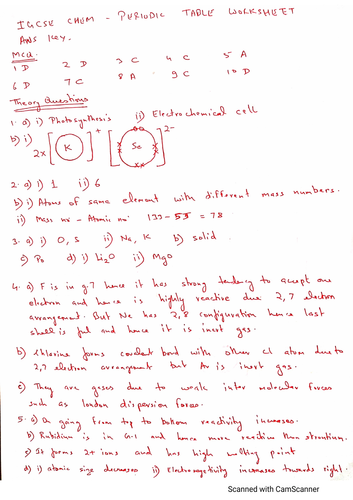 IGCSE CHEM - PERIODIC TABLE WORKSHEET
ANS KEY.
MCQ.
1 D 2 D 3 C 4 C 5 A
6 D 7 C 8 A 9 C 10 D
Theory Questions
1. a) i) Photosynthesis ii) Electrochemical cell
b) i) 2x [K]+ [Se]2-
2. a) i) 1 ii) 6
b) i) Atoms of same element with different mass numbers.
ii) Mass no - Atomic no. 133 - 55 = 78
3. a) i) O, S ii) Na, K b) solid
c) Po d) i) Li2O ii) MgO
4. a) F is in g.7 hence it has strong tendency to accept one
electron and hence is highly reactive due 2,7 electron
arrangement. But Ne has 2,8 configuration hence last
shell is full and hence it is inert gas.
b) Chlorine forms covalent bond with other Cl atom due to
2,7 electron arrangement but Ar is inert gas.
c) They are gases due to weak inter molecular forces
such as london dispersion forces.
5. a) On going from top to bottom reactivity increases.
b) Rubidium is in G-1 and hence more reactive than strontium.
c) It forms 2+ ions and has high melting point
d) i) atomic size decreases ii) Electronegativity increases towards right.
Scanned with CamScanner